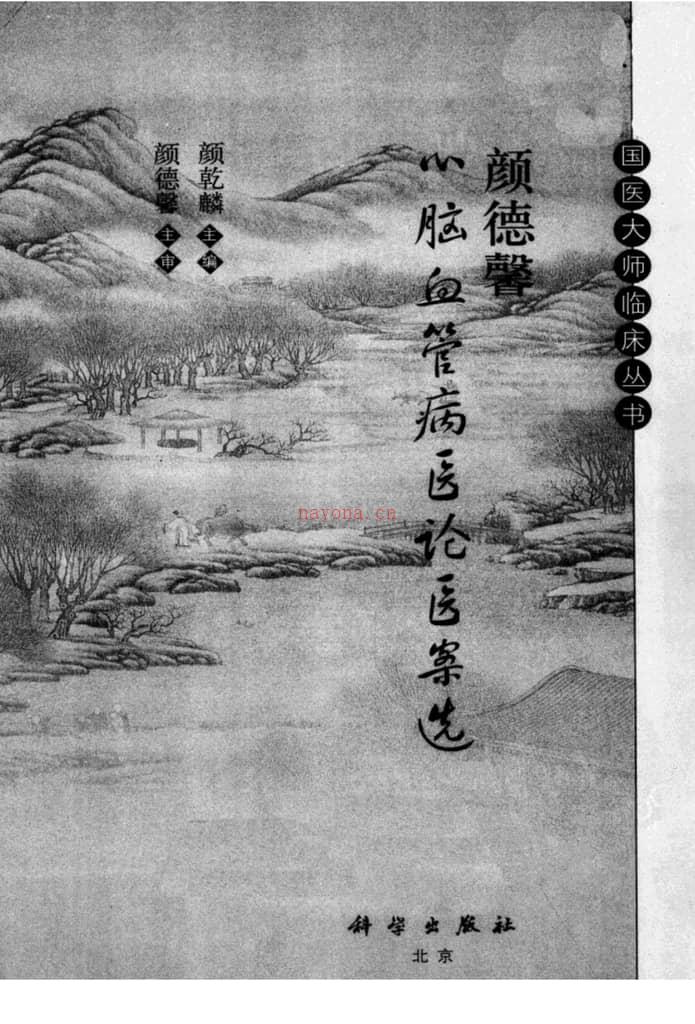 国医大师临床丛书
颜德馨
心脑血管病医论医案选
颜乾麟 主编
颜德馨 主审
nayona.cn
科学出版社
北京